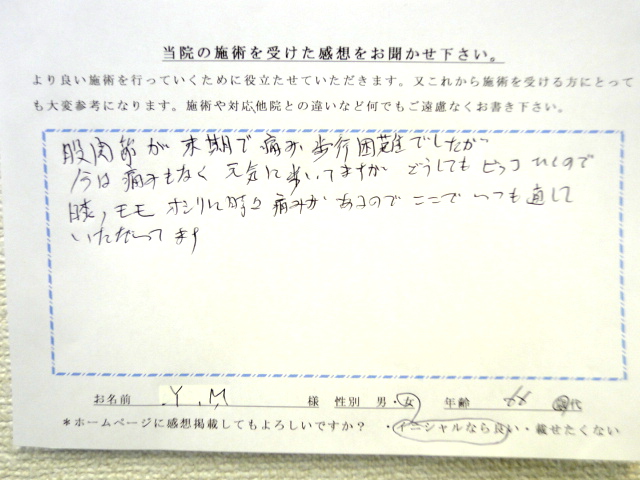 当院の施術を受けた感想をお聞かせ下さい。
より良い施術を行っていくために役立たせていただきます。又これから施術を受ける方にとって
も大変参考になります。施術や対応、他院との違いなど何でもご遠慮なくお書き下さい。
股関節が末期で痛み歩行困難でしたが
今は痛みもなく元気に歩いてますが どうしてもビッコひくので
膝、モモ オシリに時々痛みが あるので ここで いつも直して
いただいてます
お名前 Y.M 様 性別 男・女 年齢 代
*ホームページに感想掲載してもよろしいですか? ・イニシャルなら良い・載せたくない